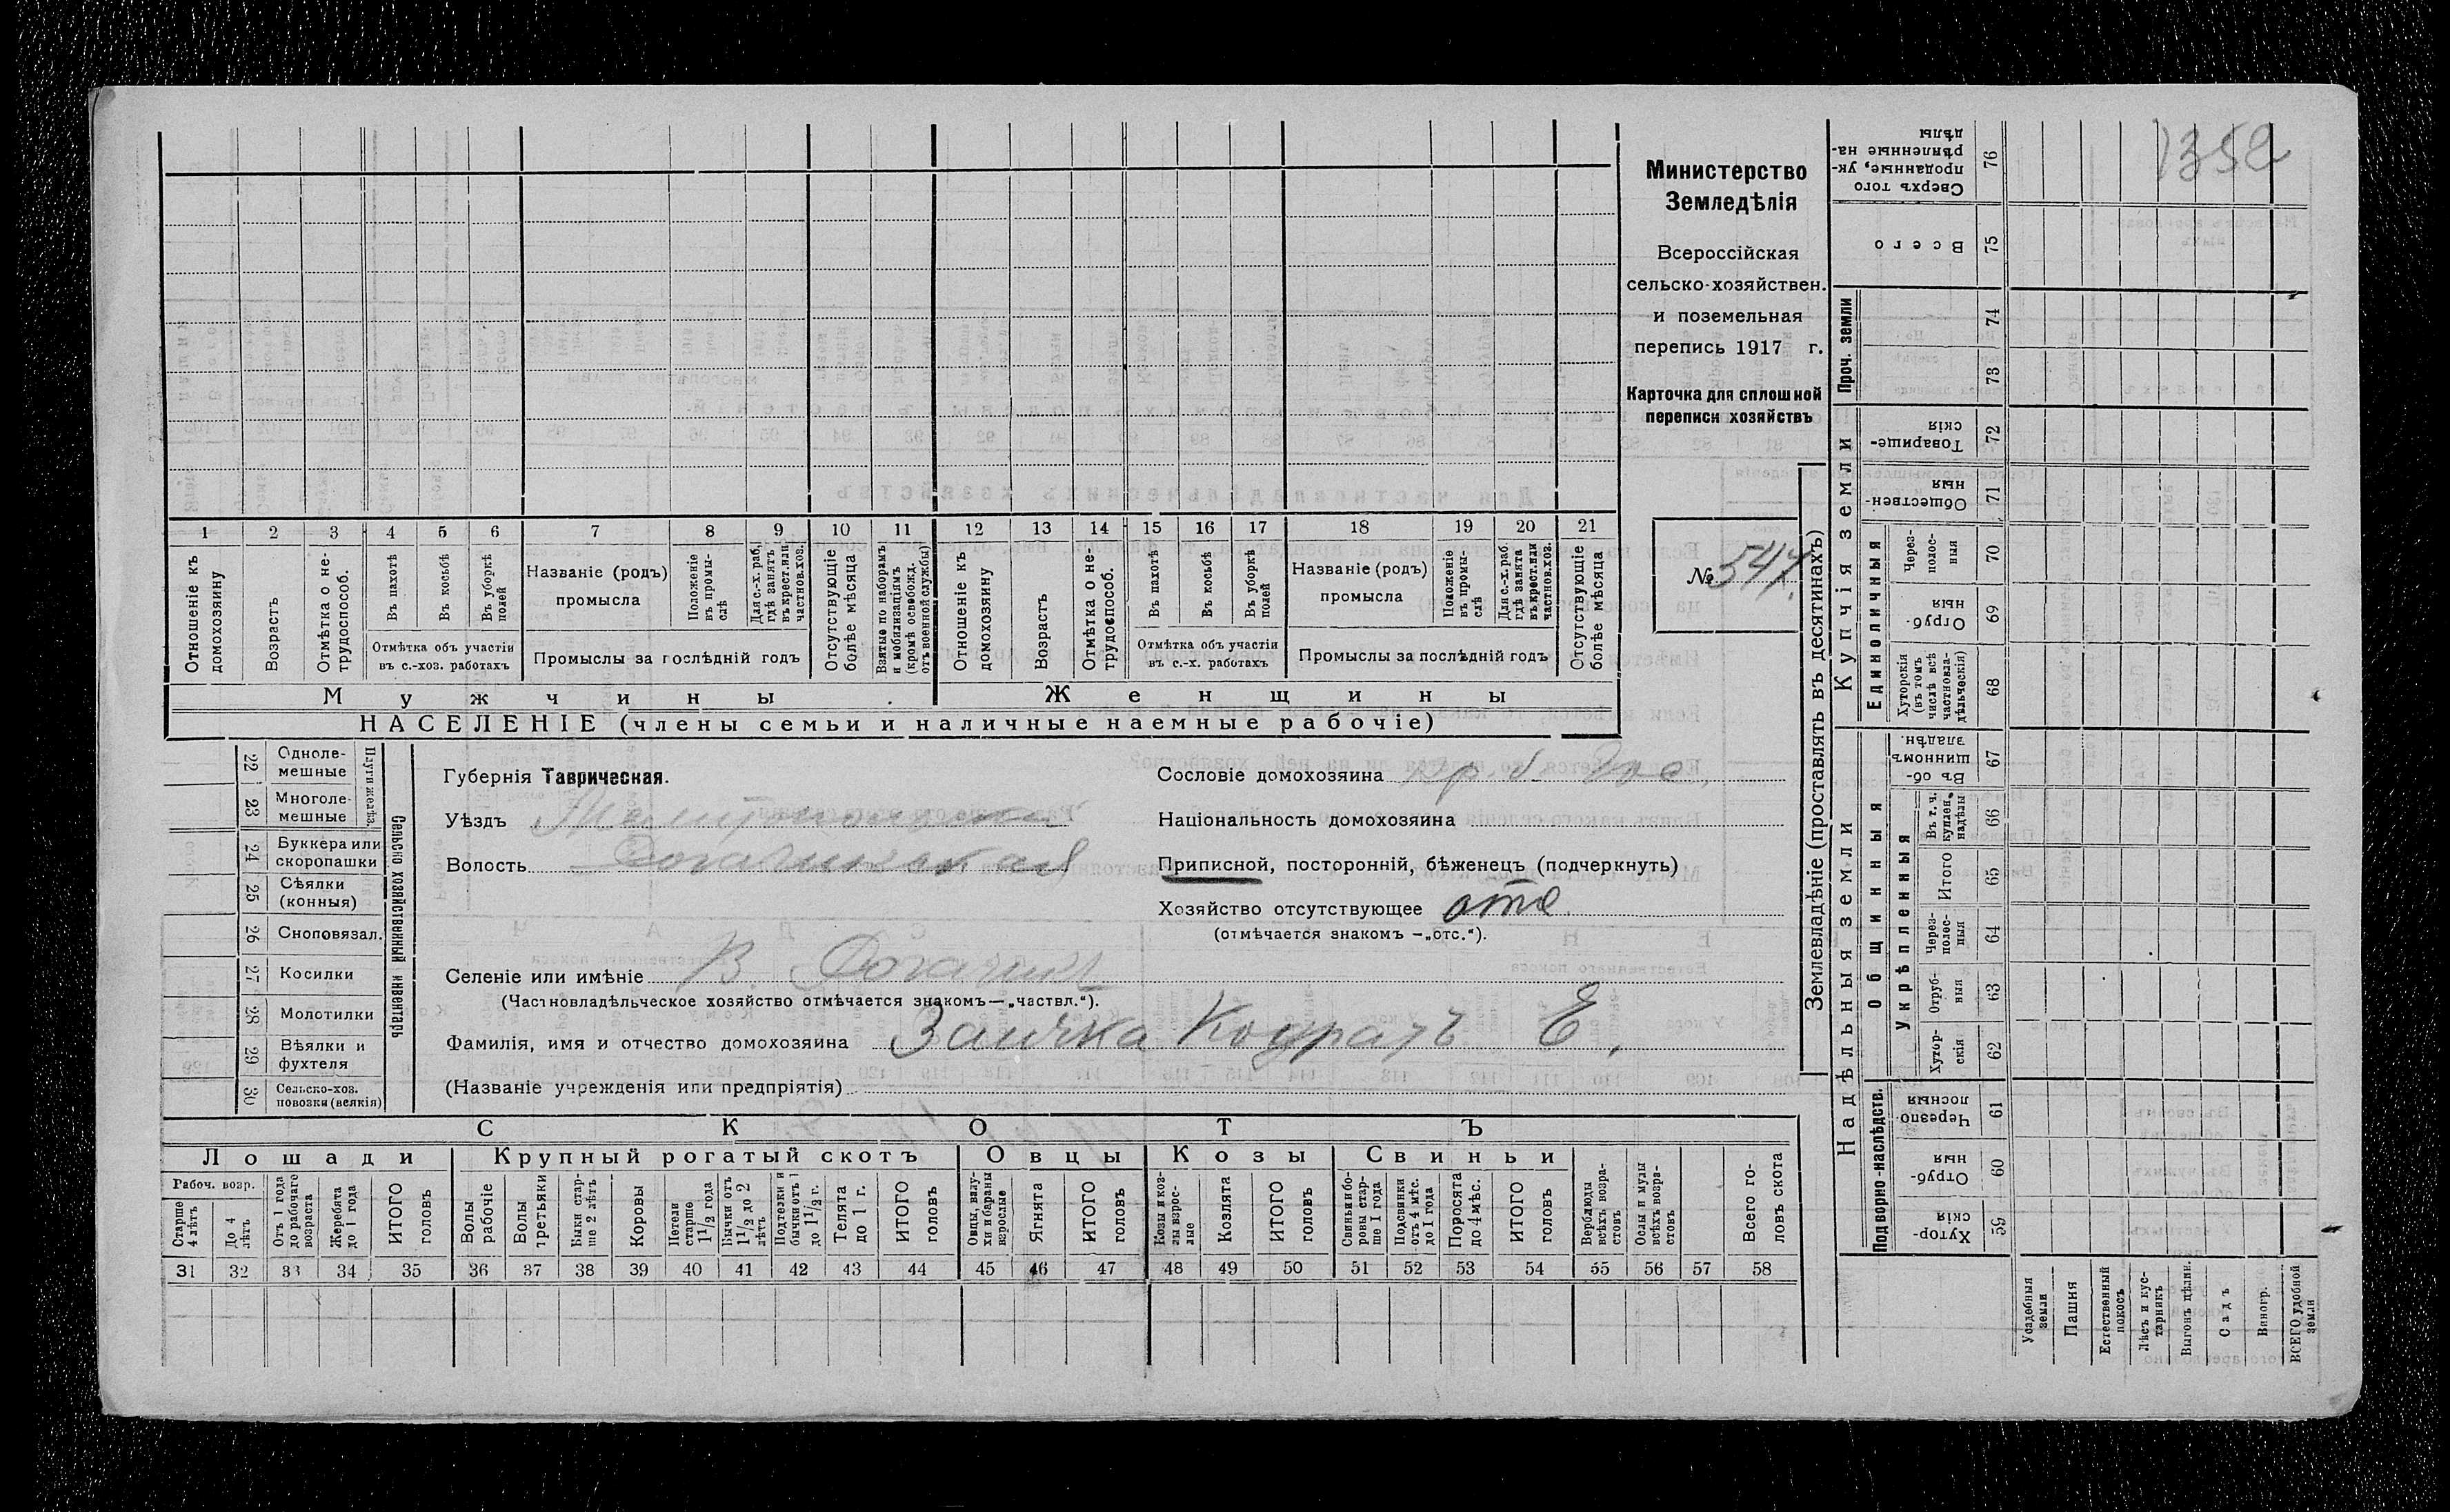 1352
Министерство
Земледѣлія
Всероссійская
сельско-хозяйствен.
и поземельная
перепись 1917 г.
Карточка для сплошной
переписи хозяйствъ
№ 547.
1 2 3 4 5 6 7 8 9 10 11 12 13 14 15 16 17 18 19 20 21
Отношеніе къ домохозяину
Возрастъ
Отмѣтка о нетрудоспособ.
Въ пахотѣ
Въ косьбѣ
Въ уборкѣ полей
Отмѣтка объ участіи
въ с.-хоз. работахъ
Названіе (родъ)
промысла
Положеніе въ промыслѣ
Для с.-х. раб., гдѣ занятъ въ крест. или частнов. хоз.
Промыслы за послѣдній годъ
Отсутствующіе болѣе мѣсяца
Взятые по наборамъ и мобилизаціямъ (кромѣ освобожд. отъ военной службы)
Отношеніе къ домохозяину
Возрастъ
Отмѣтка о нетрудоспособ.
Въ пахотѣ
Въ косьбѣ
Въ уборкѣ полей
Отмѣтка объ участіи
въ с.-х. работахъ
Названіе (родъ)
промысла
Положеніе въ промыслѣ
Для с.-х. раб. гдѣ занята въ крест. или частнов. хоз.
Промыслы за послѣдній годъ
Отсутствующіе болѣе мѣсяца
Мужчины. Женщины
НАСЕЛЕНІЕ (члены семьи и наличные наемные рабочіе)
22 Однолемешные
23 Многолемешные
Плуги желѣз.
24 Буккера или скоропашки
25 Сѣялки (конныя)
26 Сноповязал.
27 Косилки
28 Молотилки
29 Вѣялки и фухтеля
30 Сельско-хоз. повозки (всякія)
Сельско хозяйственный инвентарь
Губернія Таврическая.
Уѣздъ
Волость
Селеніе или имѣніе В. Рогачикъ
(Частновладѣльческое хозяйство отмѣчается знакомъ—„частвл.“).
Фамилія, имя и отчество домохозяина Заичка Кодратъ Е.
(Названіе учрежденія или предпріятія)
Сословіе домохозяина
Національность домохозяина
Приписной, посторонній, бѣженецъ (подчеркнуть)
Хозяйство отсутствующее отс
(отмѣчается знакомъ —„отс.“).
СКОТЪ
Лошади Крупный рогатый скотъ Овцы Козы Свиньи
Рабоч. возр.
Старше 4 лѣтъ
До 4 лѣтъ
Отъ 1 года до рабочаго возраста
Жеребята до 1 года
ИТОГО головъ
Волы рабочіе
Волы третьяки
Быки старше 2 лѣтъ
Коровы
Нетели старше 1 1/2 года
Бычки отъ 1 1/2 до 2 лѣтъ
Подтелки и бычки отъ 1 до 1 1/2 г.
Телята до 1 г.
ИТОГО головъ
Овцы, валухи и бараны взрослые
Ягнята
ИТОГО головъ
Козы и козлы взрослые
Козлята
ИТОГО головъ
Свиньи и боровы старше 1 года
Подсвинки отъ 4 мѣс. до 1 года
Поросята до 4 мѣс.
ИТОГО головъ
Верблюды всѣхъ возрастовъ
Ослы и мулы всѣхъ возрастовъ
Всего головъ скота
31 32 33 34 35 36 37 38 39 40 41 42 43 44 45 46 47 48 49 50 51 52 53 54 55 56 57 58
Землевладѣніе (проставлять въ десятинахъ)
Надѣльныя земли
Купчія земли
Проч. земли
Подворно-наслѣдств.
Общинныя
Укрѣпленныя
Единоличныя
Хуторскія 59
Отрубныя 60
Черезполосныя 61
Хуторскія 62
Отрубныя 63
Черезполосныя 64
Итого 65
Въ т. ч. куплен. надѣлы 66
Въ общинномъ владѣн. 67
Хуторскія (въ томъ числѣ всѣ частновладѣльческія) 68
Отрубныя 69
Черезполосныя 70
Общественныя 71
Товарищескія 72
73
74
Всего 75
Сверхъ того проданные, укрѣпленные надѣлы 76
Усадебныя земли
Пашня
Естественный покосъ
Лѣсъ и кустарникъ
Выгонъ цѣлин.
Садъ
Виногр.
ВСЕГО удобной земли